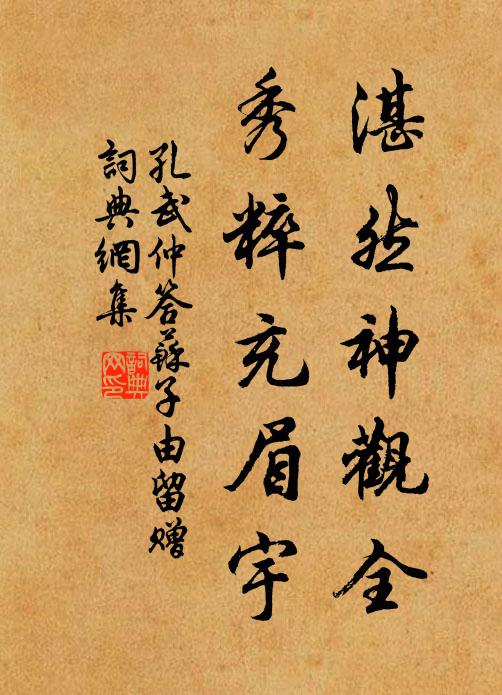 湛然神觀全
秀粹充眉宇
孔武仲答蘇子由留贈
詞典網集
詞典网印